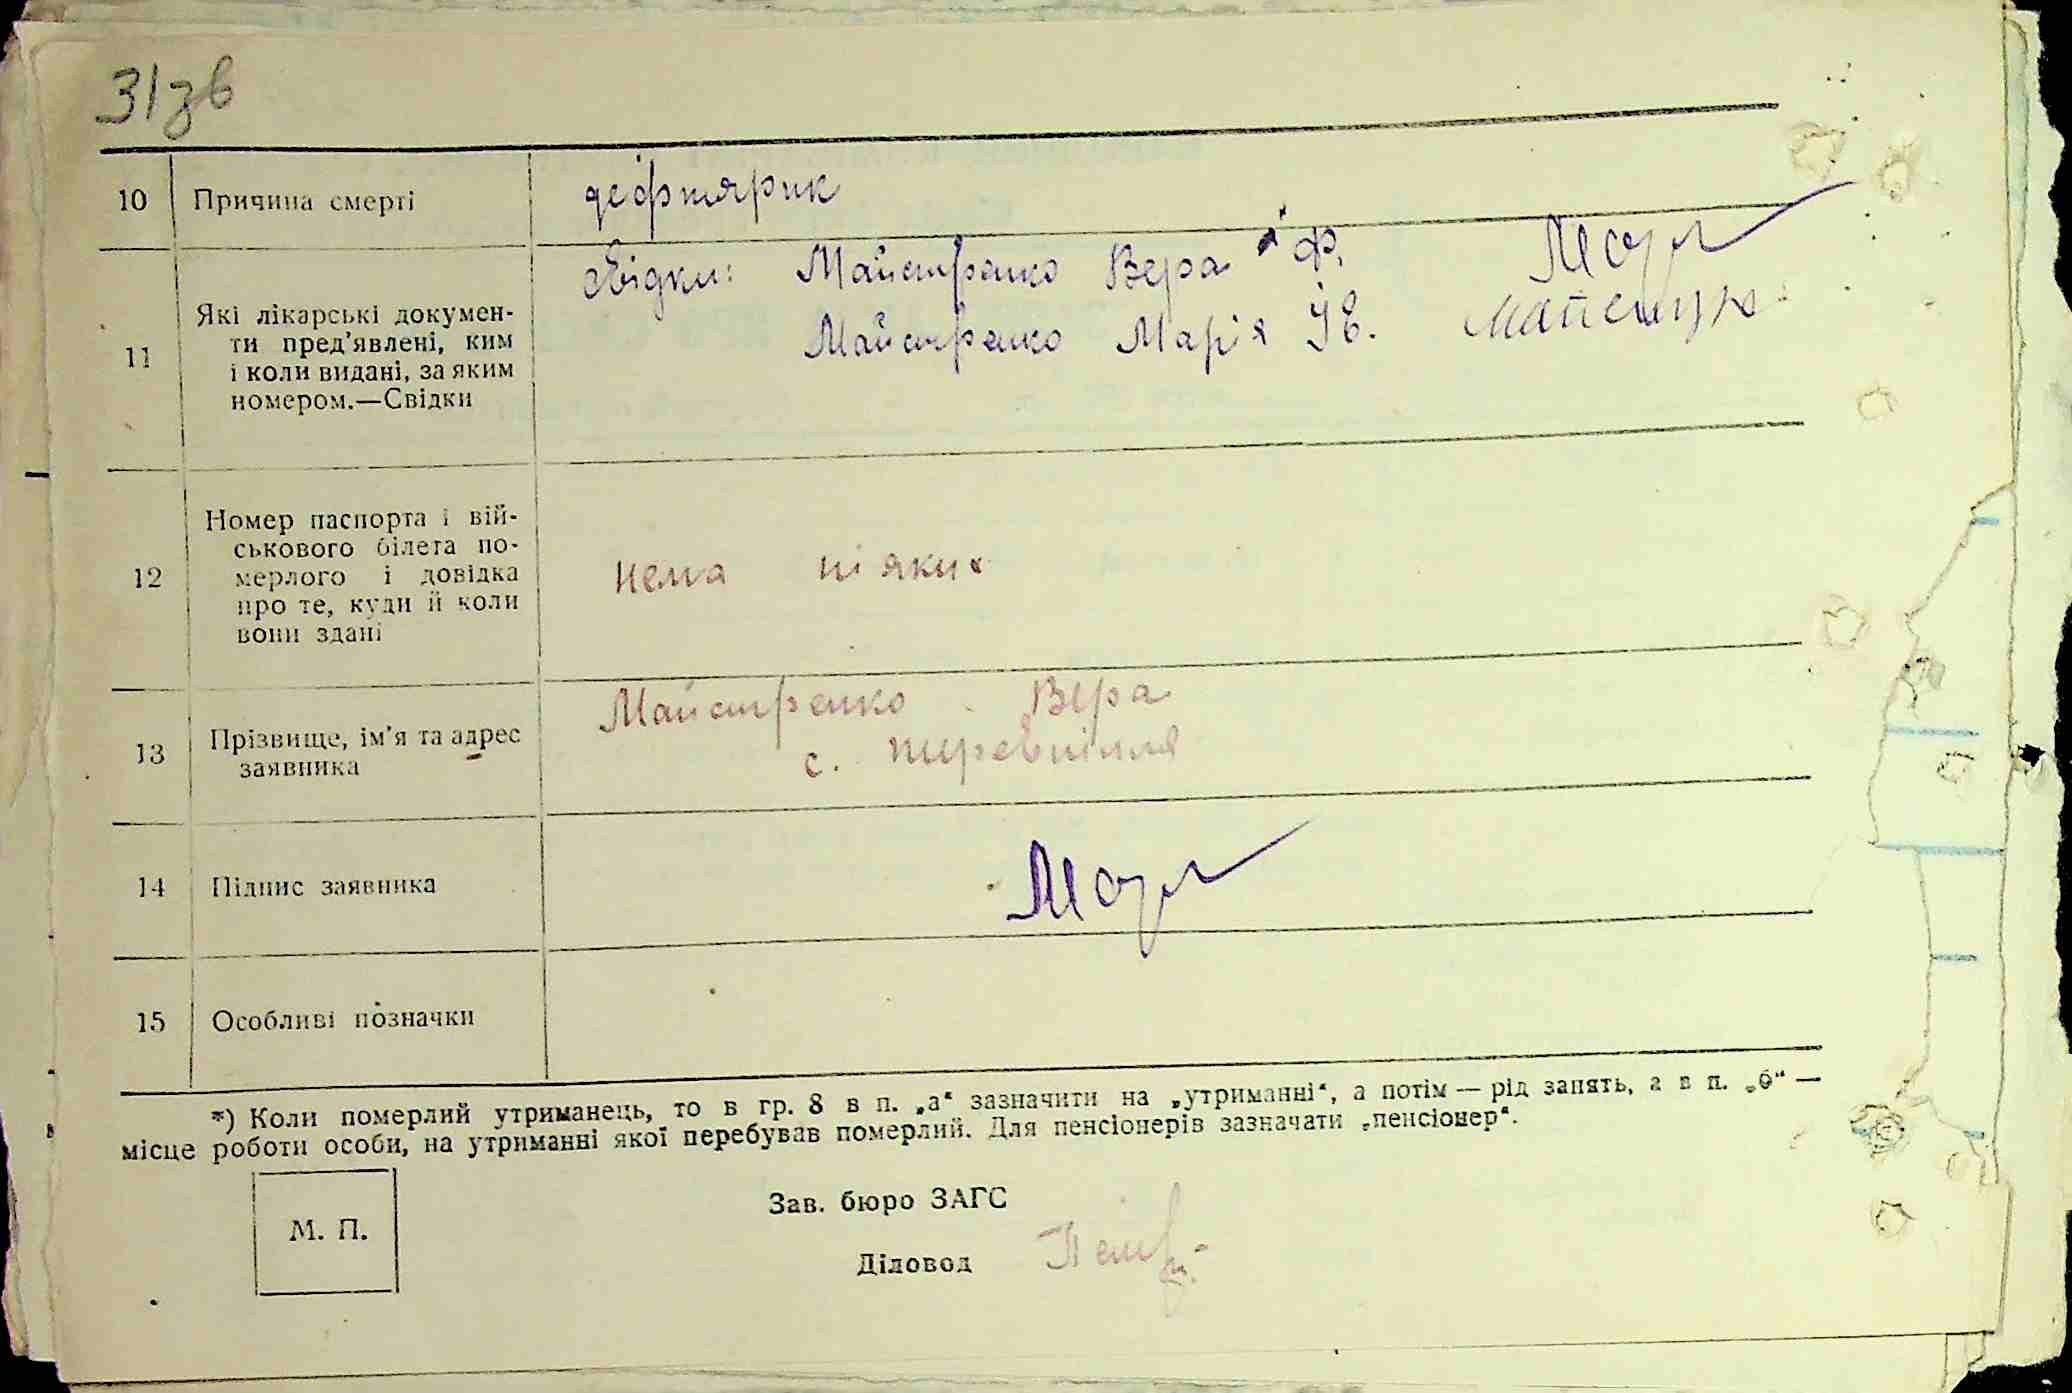 31зв
10 Причина смерті дефтярик
11 Які лікарські докумен-
ти пред'явлені, ким
і коли видані, за яким
номером.—Свідки
свідки: Майстренко Вера Ф.
Майстренко Марія
12 Номер паспорта і вій-
ськового білета по-
мерлого і довідка
про те, куди й коли
вони здані
нема ніяких
13 Прізвище, ім'я та адрес
заявника
Майстренко Вера
с.
14 Підпис заявника
15 Особливі позначки
*) Коли померлий утриманець, то в гр. 8 в п. „а“ зазначити на „утриманні“, а потім — рід занять, а в п. „б“ —
місце роботи особи, на утриманні якої перебував померлий. Для пенсіонерів зазначати „пенсіонер“.
М. П.
Зав. бюро ЗАГС
Діловод